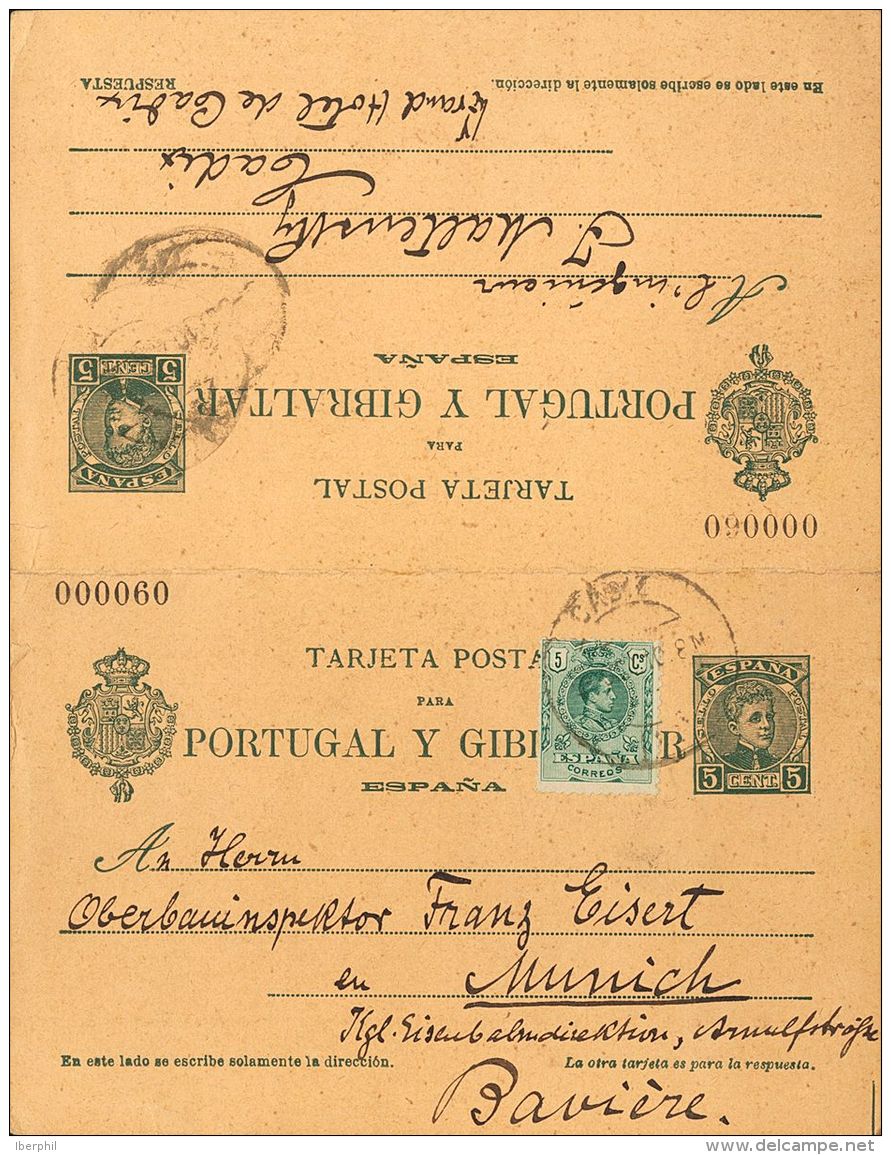 En este lado se escribe solamente la dirección.
RESPUESTA
Grand Hotel de Cadix
Cadix
A l'ingénieur
ESPAÑA
PORTUGAL Y GIBRALTAR
PARA
TARJETA POSTAL
5 CENT. 5
SELLO POSTAL
ESPAÑA
000060
000060
TARJETA POSTA
PARA
PORTUGAL Y GIB
R
ESPAÑA
5 Cs
ESPAÑA
CORREOS
ESPAÑA
SELLO POSTAL
5 CENT. 5
An Herrn
Oberbauinspektor Franz Eisert
en Munich
Kgl. Eisenbahndirektion, Arnulfstraße
En este lado se escribe solamente la dirección.
La otra tarjeta es para la respuesta.
Bavière.
Iberphil
www.delcampe.net